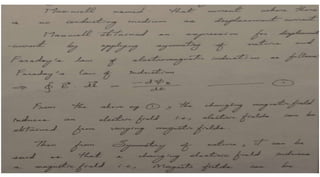 Maxwell named that current where there
is no conducting medium as displacement current.
Maxwell obtained an expression for displacement
current by applying symmetry of nature and
Faraday's law of electromagnetic induction as follows
Faraday's law of induction
⇒ ∮ E⃗ . dl⃗ = - dΦ_B / dt ——— ①
From the above eq ①, the changing magnetic field
induces an electric field i.e., electric fields can be
obtained from varying magnetic fields.
Then from Symmetry of nature, it can be
said as that a changing electric field induces
a magnetic field i.e., Magnetic fields can be